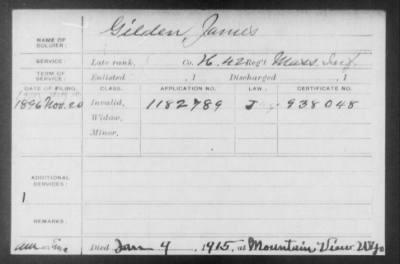 Gilden, James
NAME OF
SOLDIER:
SERVICE:
Late rank, Co. K. 42 Reg't Mass. Inf.
TERM OF
SERVICE:
Enlisted , 1 Discharged , 1
DATE OF FILING. CLASS. APPLICATION NO. LAW. CERTIFICATE NO.
1896 Nov. 20 Invalid, 1182789 J 938048
Widow,
Minor,
ADDITIONAL
SERVICES:
1
REMARKS:
Died Jan 4, 1915, at Mountain View Wyo